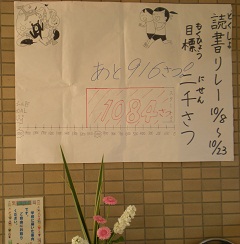 どくしょ
読書リレー 10/8～10/23
もくひょう
目標
にせん
二千さつ
あと916さつ!
1084さつ